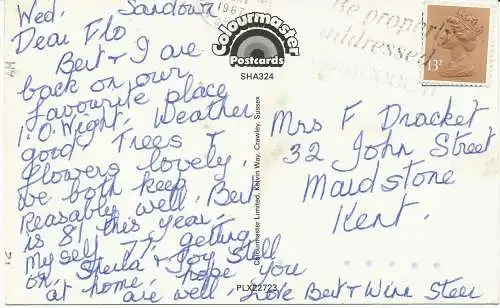 Wed. Sandown
Dear Flo
Bert & I are
back on our
favourite place
I.O.Wight. Weather
good Trees &
flowers lovely.
we both keep
Reasably well. Bert
is 81 this year.
Myself 77, getting
on, Sheila & Joy Still
at home, hope you
are well. Love Bert & Wine Steer
Colourmaster
Postcards
SHA324
Colourmaster Limited, Kelvin Way, Crawley, Sussex
PLX22723
1987
Be properly
addressed
POSTCODE IT
13P
Mrs F Dracket
32 John Street
Maidstone
Kent.